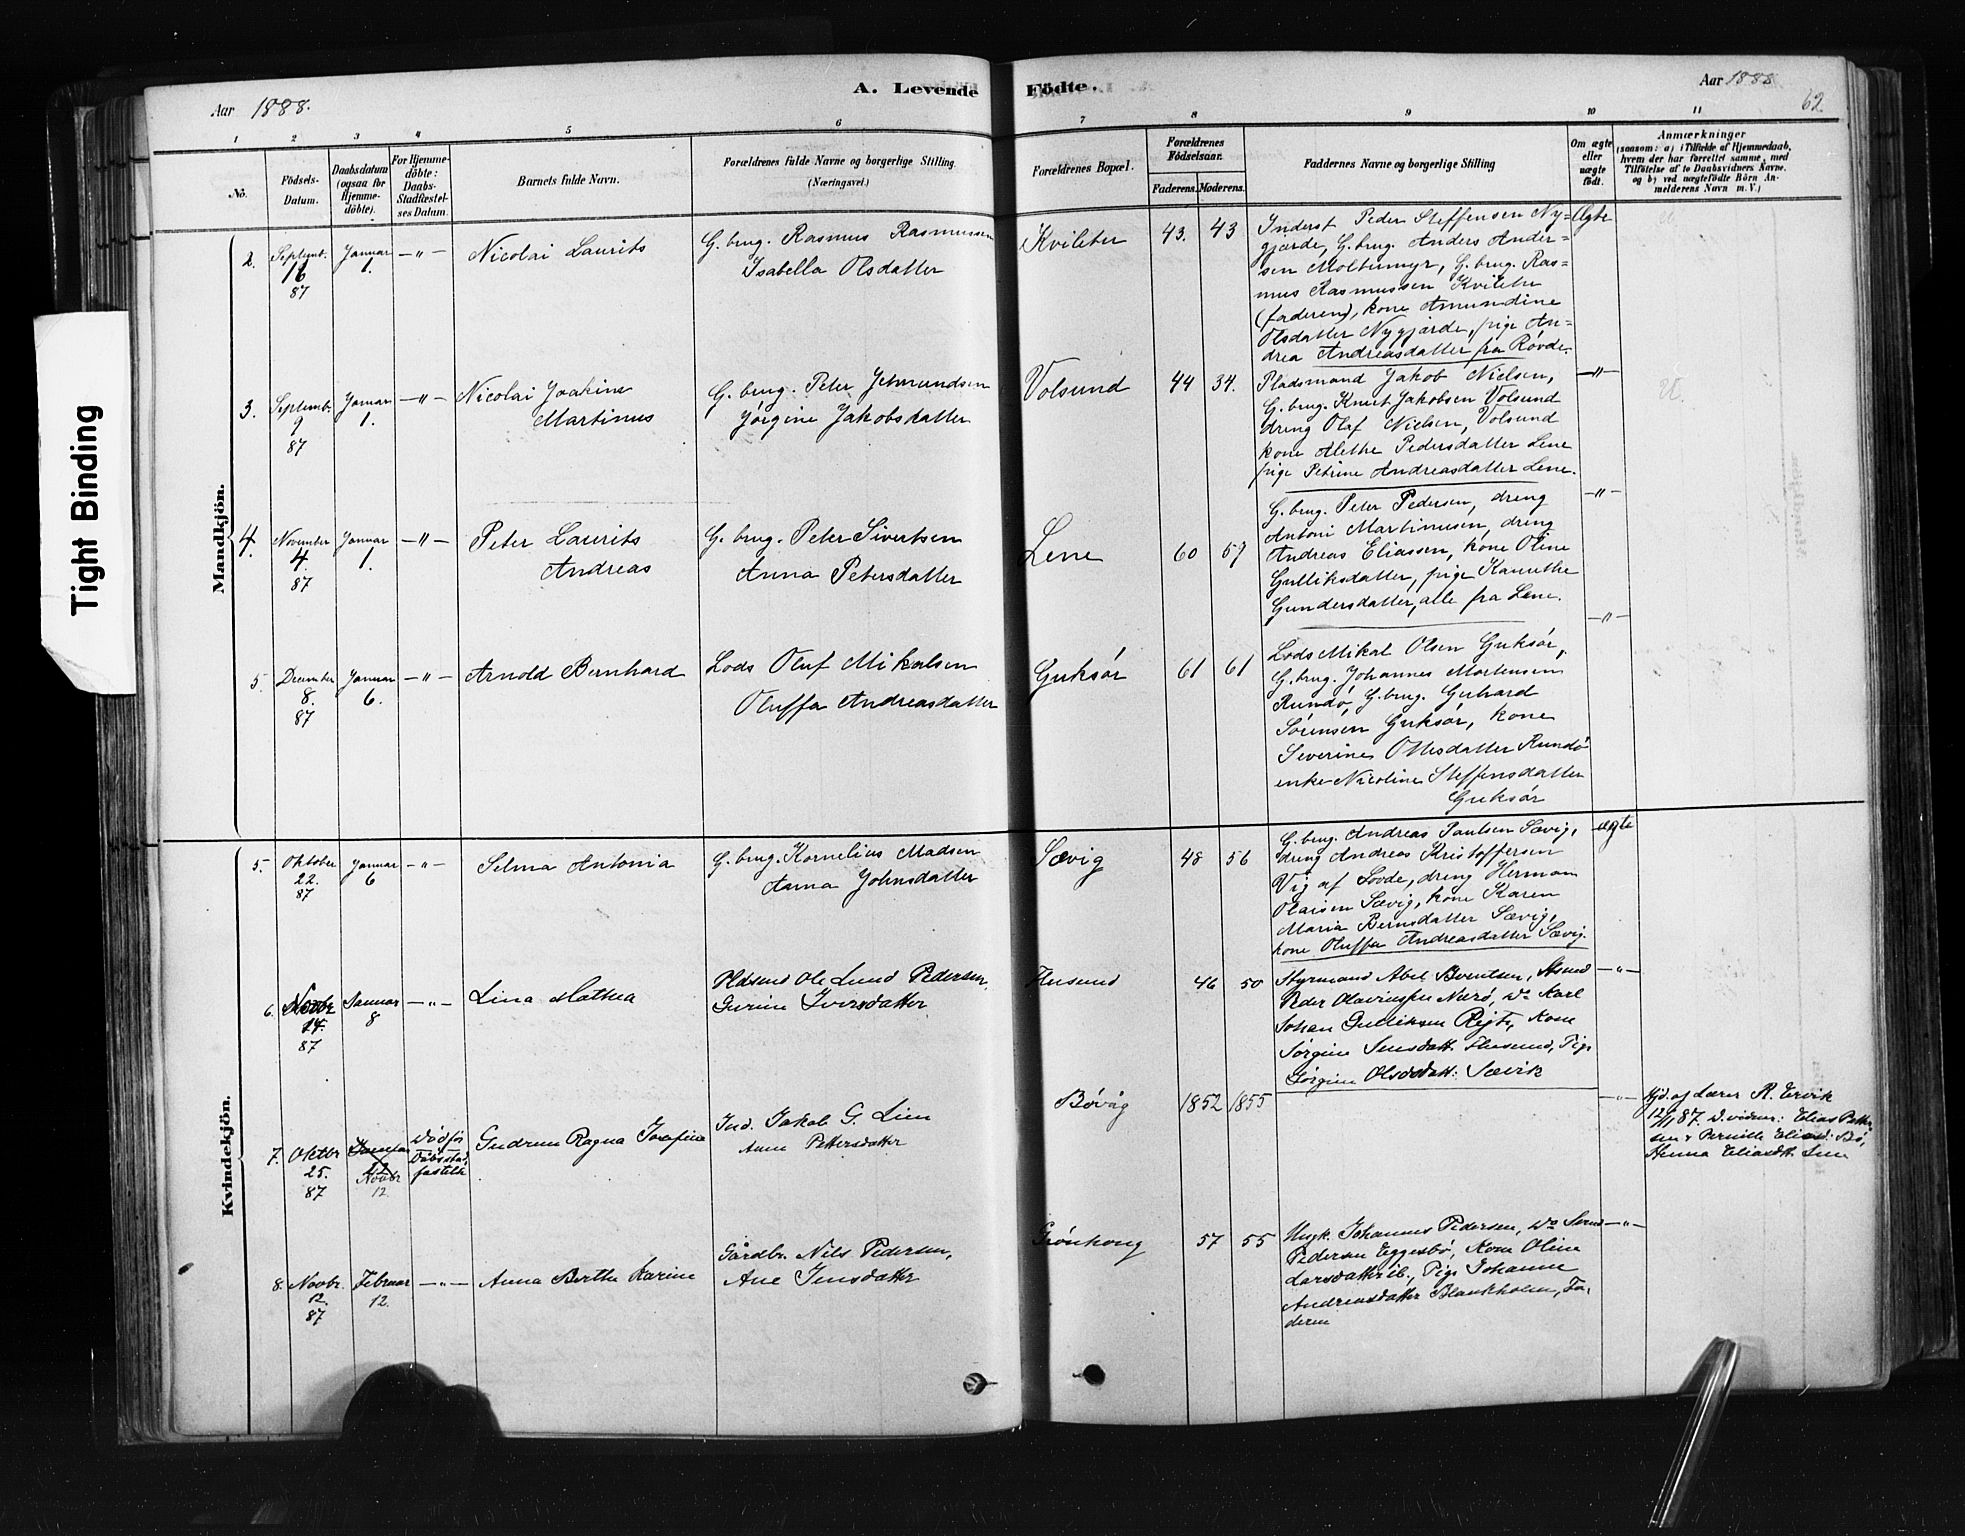 Aar 1888.
A. Levende Födte.
Aar 1888
62.
Tight Binding
1 2 3 4 5 6 7 8 9 10 11
No.
Födsels-
Datum.
Daabsdatum
(ogsaa for
Hjemme-
döbte).
For Hjemme-
döbte:
Daabs-
Stadfæstel-
ses Datum.
Barnets fulde Navn.
Forældrenes fulde Navne og borgerlige Stilling
(Næringsvei.)
Forældrenes Bopæl.
Forældrenes
Födselsaar.
Faderens. Moderens.
Faddernes Navne og borgerlige Stilling
Om ægte
eller
uægte
födt.
Anmærkninger
(saasom: a) i Tilfælde af Hjemmedaab,
hvem der har forrettet samme, med
Tilföielse af to Daabsvidners Navne,
og b) ved uægtefödte Börn An-
melderens Navn m. V.)
Mandkjön.
2.
Septemb.
16
87
Januar
1.
—"—
Nicolai Laurits
G. brug. Rasmus Rasmussen
Isabella Olsdatter
Kvileter
43. 43
Inderst Peder Steffensen Ny=
gjærde, G. brug. Anders Ander=
sen Moltumyr, G. brug. Ras=
mus Rasmussen Kvilete
(faderen), kone Amundine
Olsdatter Nygjærde, pige An=
drea Andreasdatter fra Røvde.
Ægte
3.
Septemb.
9
87
Januar
1.
—"—
Nicolai Joakim
Martinus
G. brug. Peter Jetmundsen
Jørgine Jakobsdatter
Volsund
44 34.
Pladsmand Jakob Nielsen,
G. brug. Knut Jakobsen Volsund
dreng Olaf Nielsen, Volsund
kone Alethe Pedersdatter Lene
pige Petrine Andreasdatter Lene.
—"—
4.
November
4.
87
Januar
1.
—"—
Peter Laurits
Andreas
G. brug. Peter Sivertsen
Anna Petersdatter
Lene
60 57
G. brug. Peter Pedersen, dreng
Antoni Martinusen, dreng
Andreas Eliassen, kone Oline
Gulliksdatter, pige Kanuthe
Gundersdatter, alle fra Lene.
—"—
5.
December
8.
87
Januar
6.
—"—
Arnold Bernhard
Lods Oluf Mikalsen
Oluffa Andreasdatter
Guksør
61 61
Lods Mikal Olsen Guksør,
G. brug. Johannes Mortensen
Rundø, G. brug. Gerhard
Sørensen Guksør, kone
Severine Ottesdatter Rundø
enke Nicoline Steffensdatter
Guksør
—"—
Kvindekjön.
5.
Oktober
22.
87
Januar
6
—"—
Selma Antonia
G. brug. Kornelius Madsen
Anna Johnsdatter
Sævig
48 56
G. brug. Andreas Paulsen Sævig,
dreng Andreas Kristoffersen
Vig af Sovde, dreng Herman
Olaisen Sævig, kone Karen
Maria Berntsdatter Sævig,
kone Oluffa Andreasdatter Sævig.
ægte
6.
Novbr
14.
87
Januar
8
—"—
Lina Mathea
Ole Lund Pedersen,
Iversdatter
Flusund
46 50
Styrmand Abel Berntsen,
Peder Nerø, Do Karl
Johan Gulliksen Røjte, Kone
Jørgine Jensdatt. Flusund, Pige
Jørgine Olsdatt: Sævik
—"—
7.
Oktbr
25.
87
Novbr
12.
Gudrun Ragna Josefine
Ind. Jakob G. Lien
Anne Pettersdatter
Bøvåg
1852 1855
—"—
Hjd. af Lærer R. Ervik
12/11 87. D.vidner: Elias Petter-
sen & Pernille Eliasd: Bø,
Hanna Eliasdt.
8.
Novbr.
12.
87
Februar
12.
—"—
Anna Berthe Karine
Gårdbr. Nils Pedersen,
Ane Jensdatter
Grønhong
57 55
Ungk. Johannes Pedersen, Do
Pedersen Eggesbø, Kone Oline
Larsdatter ib., Pige Johanne
Andreasdatter Blankholm, Fa-
deren
—"—